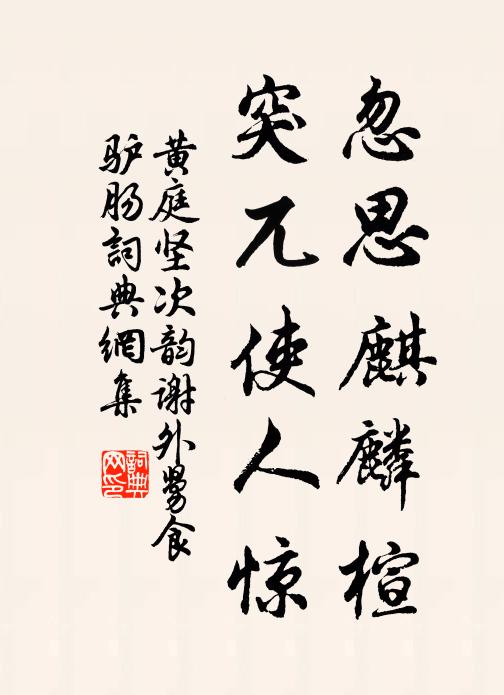 忽思麒麟楦
突兀使人惊
黄庭坚次韵谢外舅食
驴肠词典網集
詞典
网印